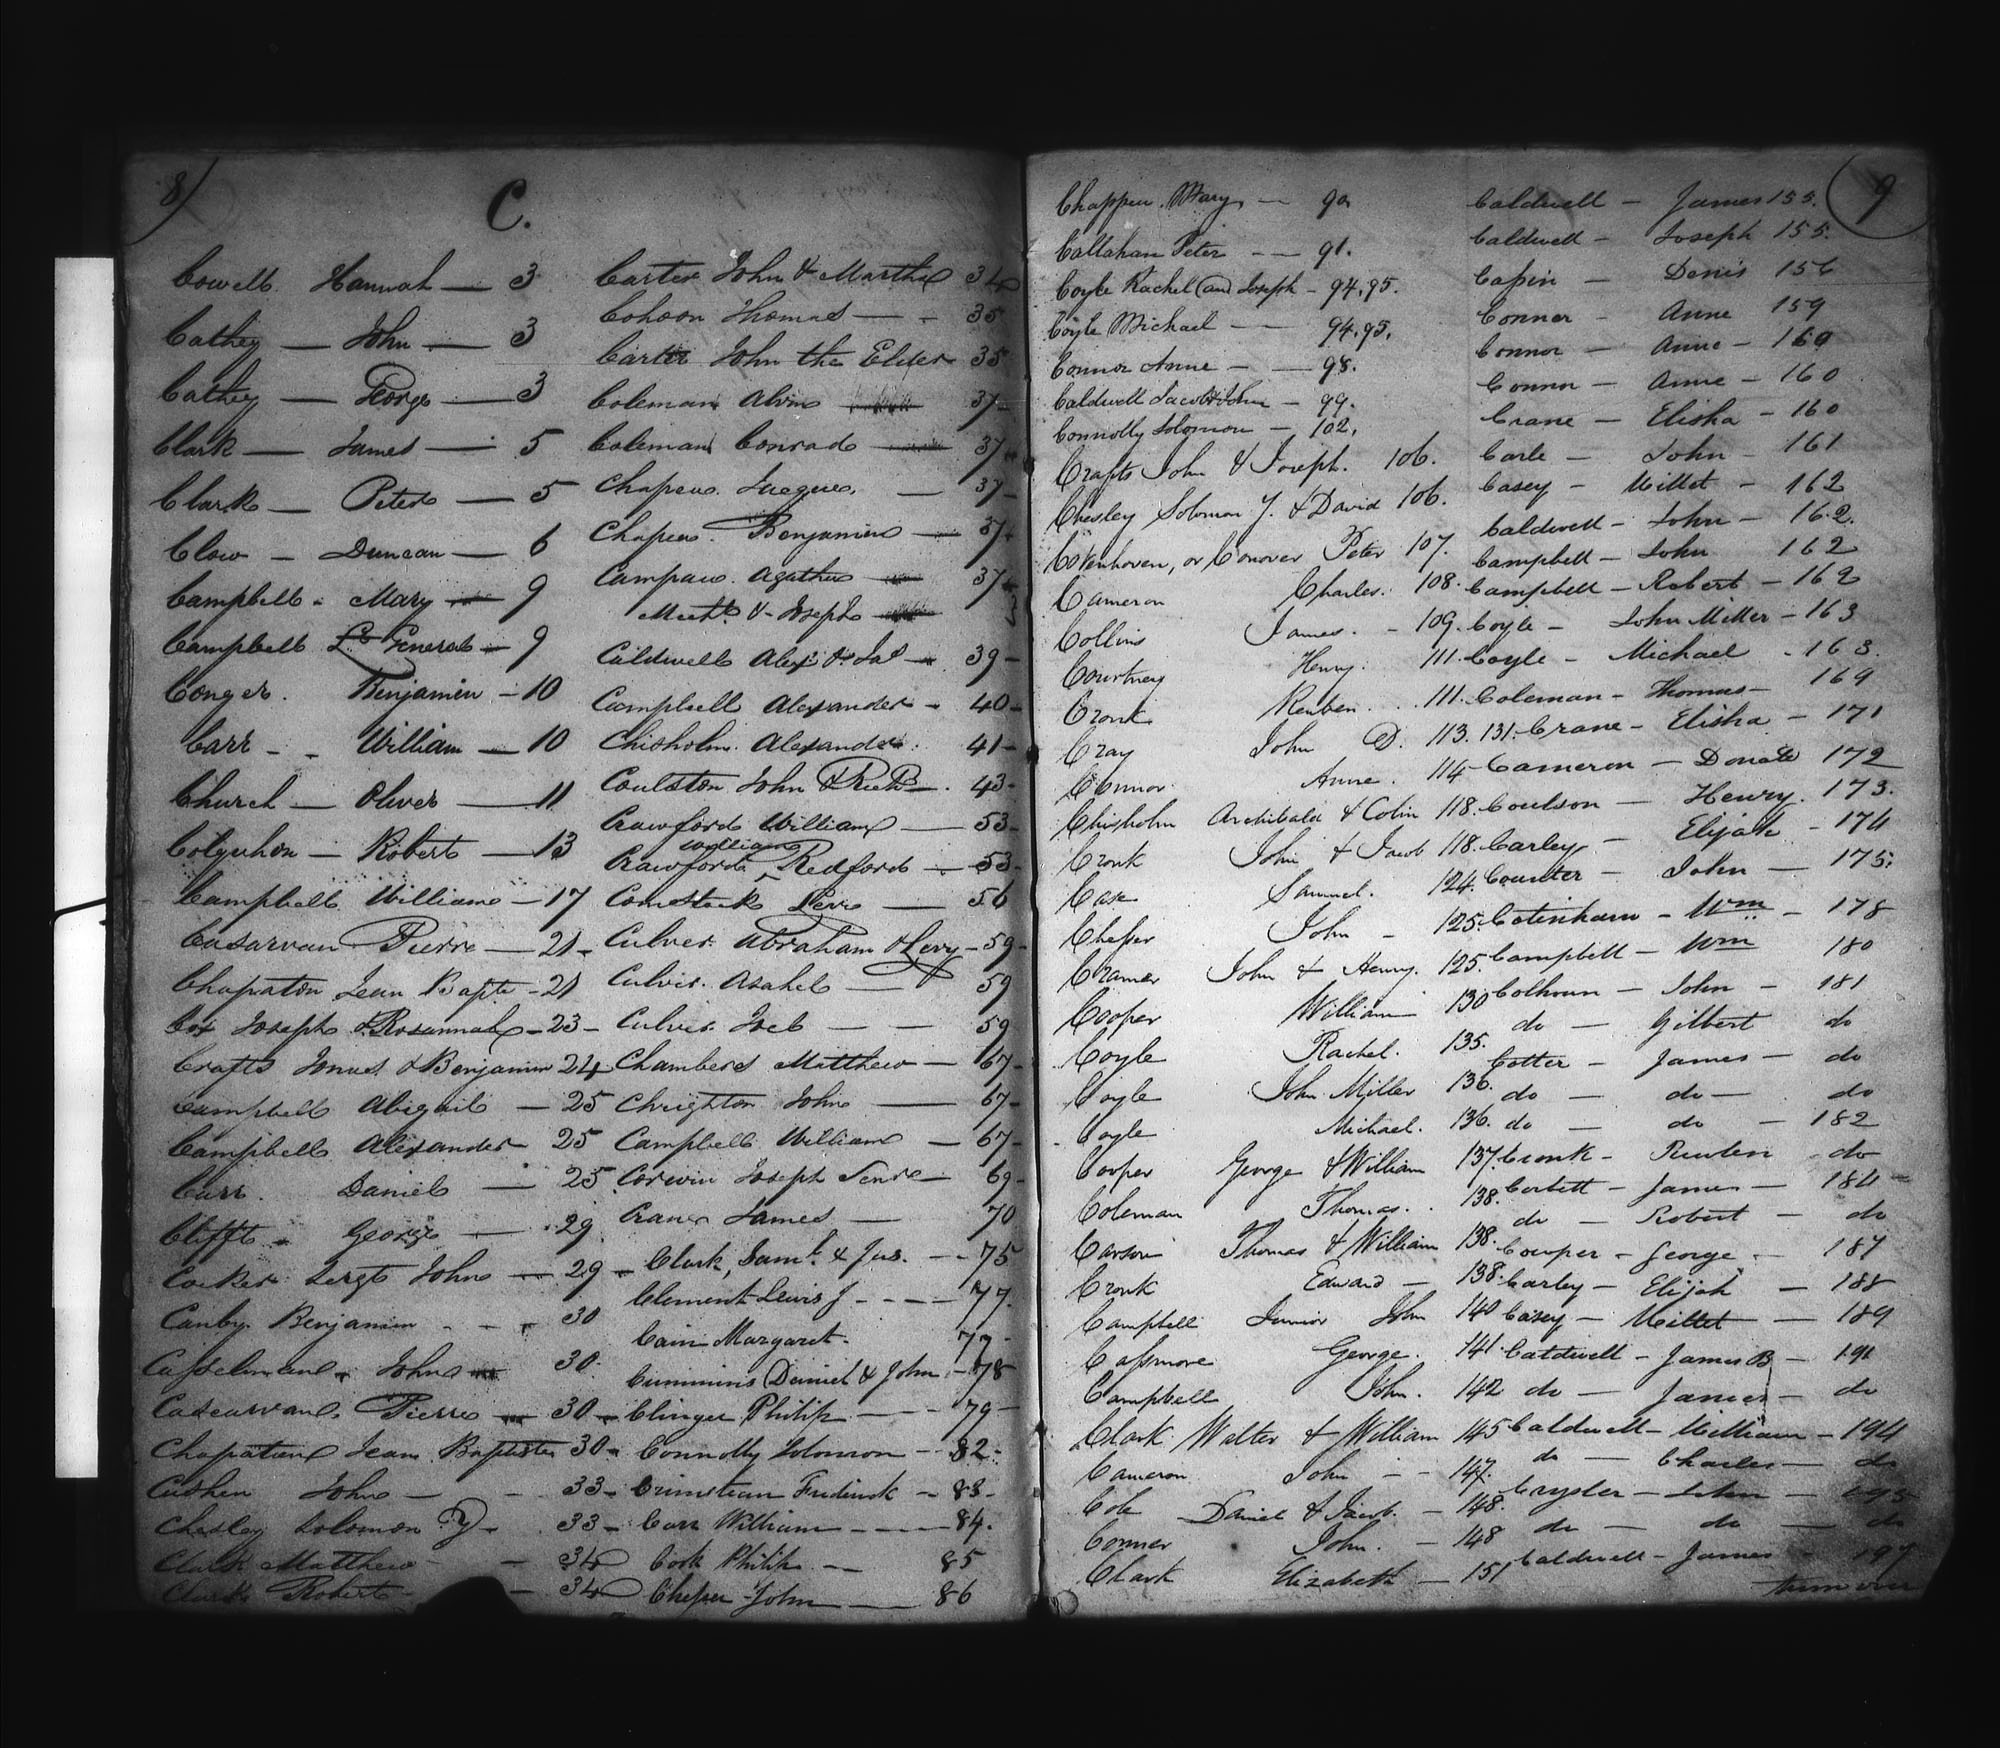 8)
C.
Cowell Hannah — 3
Cathey — John — 3
Cathey — George — 3
Clark — James — 5
Clark — Peter — 5
Clow — Duncan — 6
Campbell - Mary — 9
Campbell Lt General — 9
Conger. Benjamin — 10
Carr - - William — 10
Church — Oliver — 11
Colquhon — Robert — 13
Campbell William — 17
Casarvan Pierre — 21 -
Chapaton Jean Bapte - 21
Cox Joseph & Rosannah - 23 -
Crafts Jonas & Benjamin 24
Campbell Abigail — 25
Campbell Alexander - 25
Carr. Daniel — 25
Clifft - George — 29
Cocker Sergt John — 29 -
Canby Benjamin - - - 30
Casselman - John 30
Cascarvan Pierre — 30 -
Chapatian Jean Baptiste 30 -
Cushen John — - 33 -
Chesley Solomon Y - 33 -
Clark Matthew - - 34
Clark Robert - - 34
Carter John & Martha 34
Cohoon Thomas — - 35
Carter John the Elder 35
Coleman Alvin 37 -
Coleman Conrad 37
Chapeau Jacques. — 37 -
Chapeau. Benjamin — 37
Campau. Agathe — 37
& Joseph
Caldwell Alexr & Jas — 39 -
Campbell Alexander - 40 -
Chisholm. Alexander. 41 -
Coulston John & Richd — 43 -
Crawford William — 53 -
Crawford William Redford — 53 -
Comstock Levi — 56
Culver Abraham & Levy - 59 -
Culver. Asahel — 59
Culver. Joel — — 59
Chambers Matthew — 67 -
Chrighton John — 67 -
Campbell William — 67 -
Corwin Joseph Senr — 69 -
Crane James — 70
Clark, Saml. & Jas. - - 75
Clement Lewis J - - - — 77.
Cain Margaret. 77 -
Cummins Daniel & John - 78
Clinger Philip — - - 79 -
Connolly Solomon - - 82 -
Crinstean Fredirick - 83 -
Carr William — - - - 84 -
Cook Philip — - 85
Chesser John — 86
9
Chappeu. Mary — 90
Callahan Peter - — 91.
Coyle Rachel (and Joseph - 94, 95.
Coyle Michael - — 94, 95.
Connor Anne - — 98.
Caldwell Jacob & John - 99.
Connolly Solomon - 102.
Crafts John & Joseph. 106.
Chesley Solomon Y. & David 106.
Covenhoven, or Conover Peter 107.
Cameron Charles. 108.
Collins James. - 109.
Courtney Henry. 111.
Cronk Reuben. . . 111.
Cray John D. 113. 131.
Connor Anne. 114
Chisholm Archibald & Colin 118.
Cronk John & Jacob 118.
Case Samuel. 124.
Chesser John - 125.
Cramer John & Henry. 125.
Cooper William 130
Coyle Rachel. 135.
Coyle John Miller 136.
Coyle Michael. 136.
Cooper George & William 137.
Coleman Thomas. . 138.
Carson Thomas & William 138.
Cronk Edward — 138.
Campbell Junior John 140
Cassmore George. 141.
Campbell John. 142
Clark Walter & William 145
Cameron John - - 147.
Cole Daniel & Jacob. - 148.
Connor John. - 148
Clark Elizabeth — 151
Caldwell - James 155.
Caldwell - Joseph 155.
Cassin — Denis 156
Connor - Anne 159
Connor — Anne - 160
Connor — Anne - 160
Crane — Elisha - 160
Carle — John - 161
Casey - Millet - 162
Caldwell - John — 162.
Campbell - John 162
Campbell - Robert - 162
Coyle - John Miller - 163
Coyle - Michael - 163.
Coleman - Thomas - 169
Crane - Elisha - 171
Cameron — Donald 172
Coulson — Henry. 173.
Carley - Elijah - 174
Counter - John — 175.
Cotenham - Wm - 178
Campbell - Wm 180
Colhoun - John - 181
do — Gilbert do
Cotter - James - do
do — do — do
do — do — 182
Cronk - Reuben - do
Corbett - James - 184 -
do - Robert - do
Cowper - George. - 187
Carley - Elijah — 188
Casey - Millet — 189
Caldwell - James B - 191
do — James - do
Caldwell - William - 194
do — Charles — do
Crysler - John - 195
do — do — do
Caldwell - James - 197
turn over